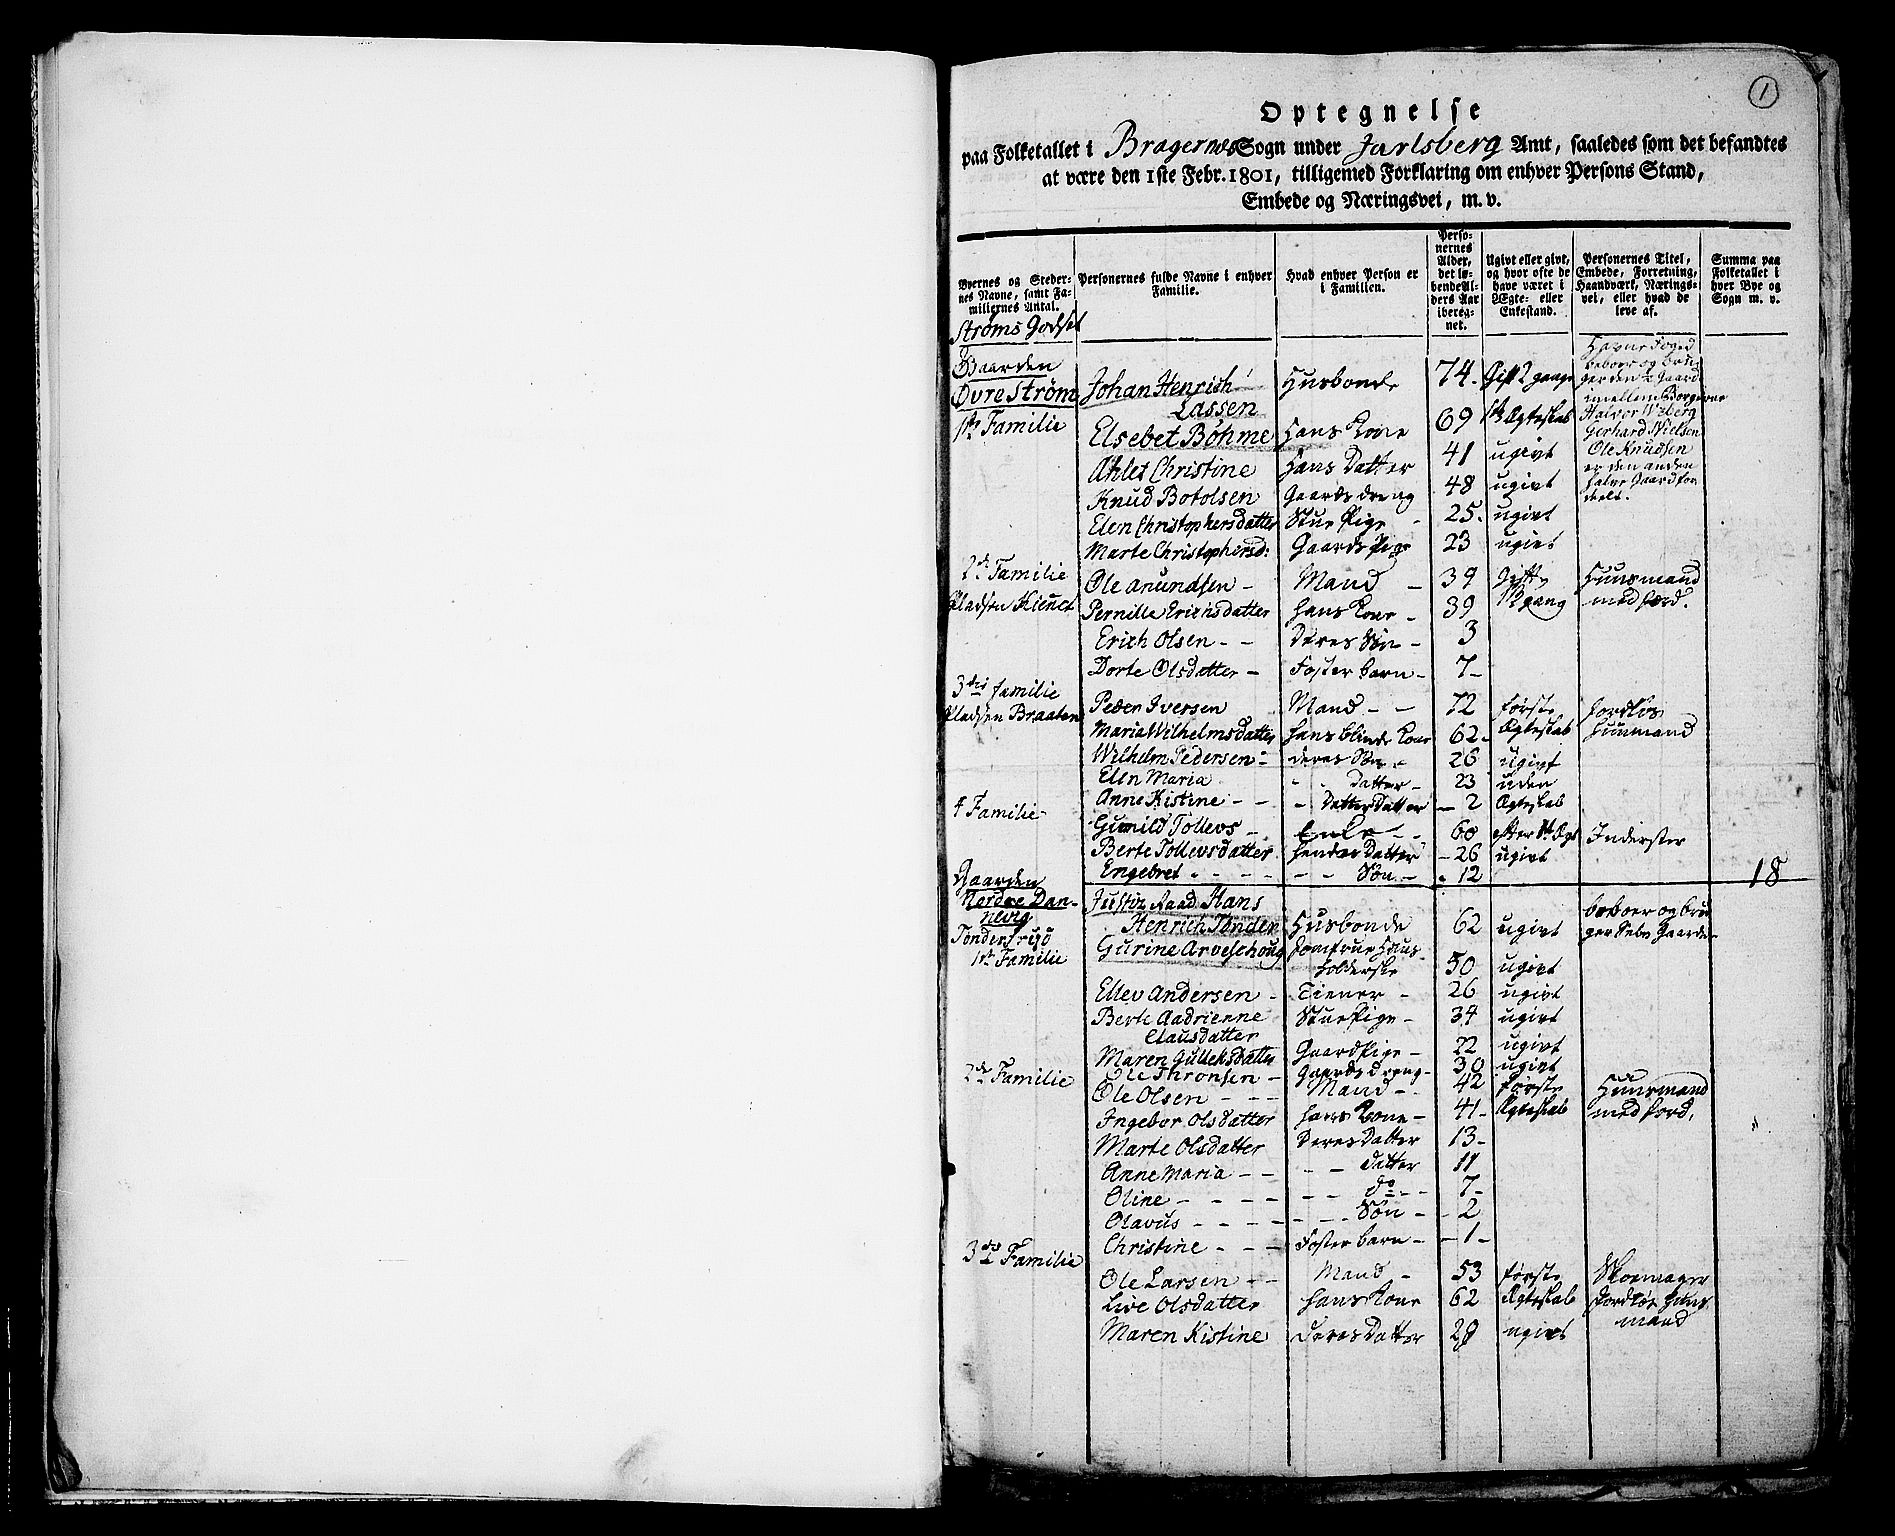 1
Optegnelse
paa Folketallet i Bragernæs Sogn under Jarlsberg Amt, saaledes som det befandtes
at være den 1ste Febr. 1801, tilligemed Forklaring om enhver Persons Stand,
Embede og Næringsvei, m. v.
Byernes og Steder-
nes Navne, samt Fa-
miliernes Antal.
Personernes fulde Navne i enhver
Familie.
Hvad enhver Person er
i Familien.
Perso-
nernes
Alder,
det lø-
bende Al-
ders Aar
iberegnet.
Ugivt eller givt,
og hvor ofte de
have været i
Ægte- eller
Enkestand.
Personernes Titel,
Embede, Forretning,
Haandværk, Nærings-
vei, eller hvad de
leve af.
Summa paa
Folketallet i
hver Bye og
Sogn m. v.
Strøms Godset
Gaarden
Øvre Strøm
1ste Familie
Johan Henrich Lassen Husbonde 74. Gift 2 gange
Havne Foged
beboer og bru-
ger den ½ Gaard
imellem Borgerne
Halvor Wiberg
Gerhard Nielsen
Ole Knudsen
er den anden
halve Gaard for
deelt.
Elsebet Böhme Hans Kone 69 1ste Ægteskab
Ahlet Christine Hans Datter 41 ugivt
Knud Botolsen Gaards dreng 48 ugivt
Elen Christophersdatter Stue Pige - 25. ugivt
Marte Christophersd: Gaards Pige 23 ugivt
2den Familie
Pladsen Kienet
Ole Anundsen - Mand - 39 Gifte Huusmand
Pernille Erichsdatter hans Kone - 39 1ste gang med Jord.
Erich Olsen - - Deres Søn - 3
Dorte Olsdatter - Foster barn - 7 -
3die familie
Pladsen Braaten
Peder Iversen Mand - - 72 første Jordløs
Maria Wilhelmsdatter hans blinde Kone 62 - Ægteskab huusmand
Wilhelm Pedersen - deres Søn - 26 ugivt
Elen Maria - - Datter - 23 uden
Anne Kistine - - - Datter Datter - 2 Ægteskab
4 Familie
Gunild Tollevs - Enke - - 60 efter 1ste Ægt Inderster
Berte Tollevsdatter hendes Datter - 26 ugivt
Engebret - - - - - - Søn - - 12
18
Gaarden
Nordre Dan-
nevig
Tønders
1ste Familie
Justiz Raad Hans
Henrich Tønder Husbonde 62 ugivt beboer og bru-
ger Selv Gaarden
Gurine Arveschoug Jomfrue Huus-
holderske 50 ugivt
Ellev Andersen - Tiener - 26 ugivt
Berte Aadrienne
Clausdatter Stue Pige - 34 ugivt
Maren Gulleksdatter Gaard Pige - 22 ugivt
Ole Thronsen - Gaards dreng - 30 ugivt
2den Familie
Ole Olsen - - - Mand - - 42 første Huusmand
Ingebor Olsdatter hans Kone - 41 - Ægteskab med Jord.
Marte Olsdatter Deres Datter 13 -
Anne Maria - - - - datter 11
Oline - - - - - - do - - 7 -
Olavus - - - - - - - Søn - - 2
Christine - - - Foster barn - - 1 -
3die Familie
Ole Larsen - - Mand - 53 første Skoemager
Live Olsdatter hans Kone 62 Ægteskab Jordløs huus
mand
Maren Kistine deres Datter 28 ugivt